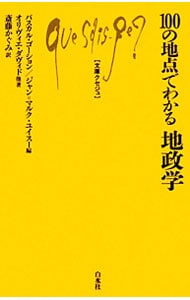 100の地点でわかる 地政学
que sais-je?
【文庫クセジュ】
パスカル・ゴーション/ジャン・マルク・ユイスー編
オリヴィエ・ダヴィド他著
斎藤かぐみ訳
白水社